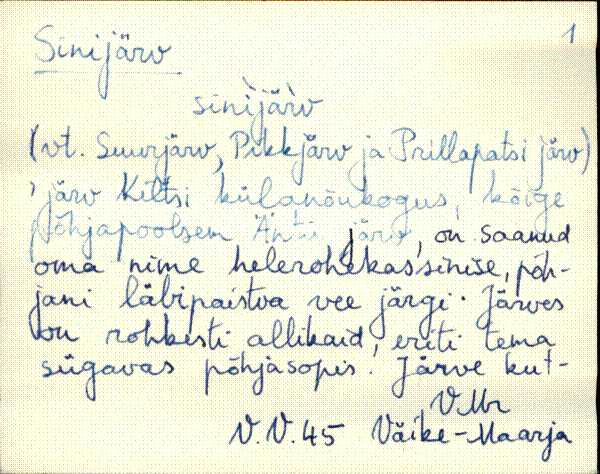 1
Sinijärv
sini̬jär̀v
(vt. Suurjärv, Pikkjärv ja Prillapatsi järv)
' järv Kiltsi külanõukogus, kõige
põhjapoolsem Äntu järv, on saanud
oma nime helerohekassinise, põh-
jani läbipaistva vee järgi. Järves
on rohkesti allikaid, eriti tema
sügavas põhjasopis. Järve kut-
VMr
V.V.45 Väike-Maarja